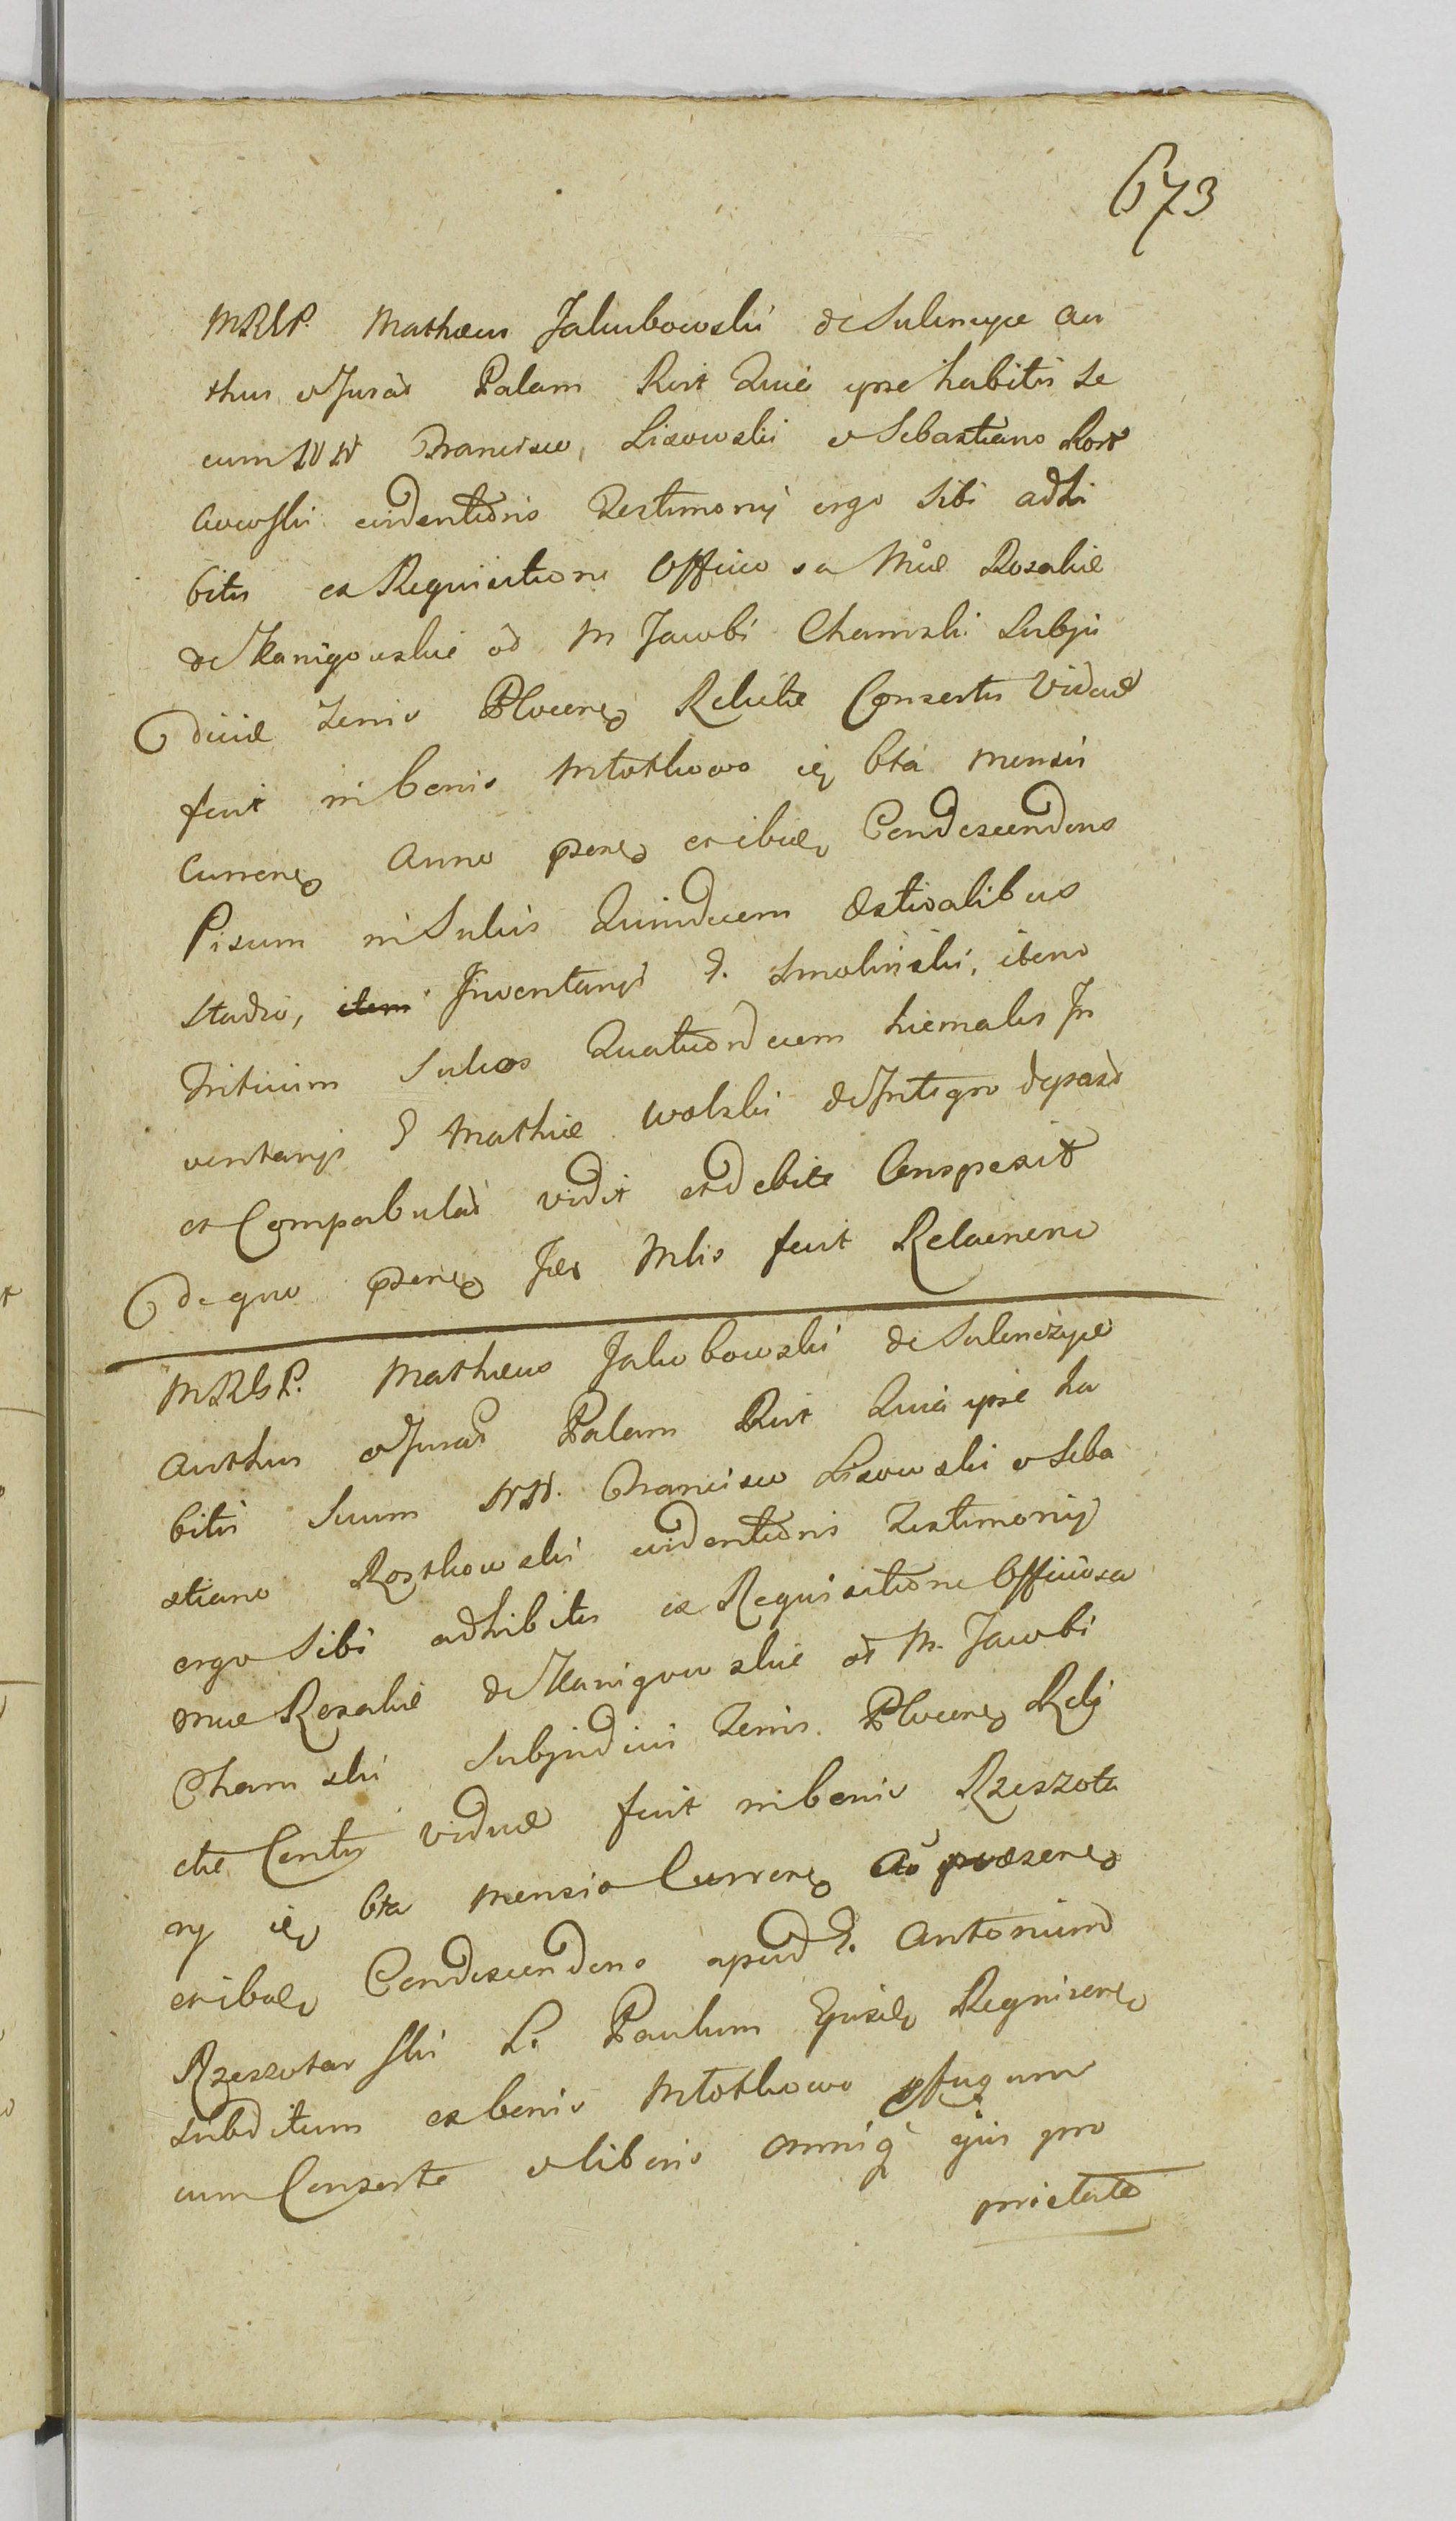 673
MRGP. Mathæus Jakubowski de Sulencyce au
thus et Juras Palam Rert Quia ipse habitis se
cum NN Francisco, Lisowski et Sebastiano Rost
kowski evidentioris Testimonij ergo sibi adhi
bitis ex Requisitione Officiosa Mæ Rosaliæ
de Kanigowskie od M Jacobi Chamski Subju
dicis Terris Plocens Relictæ Consortis Viduæ
fuit in bonis Młotkowo ie 6ta mensis
Currens Anno præns et ibidem Condescendens
Pisum in Sulcis Quindecim Æstivalibus
Stadio, Inventarij G. Smoliński, item
Triticum Sulcos Quatuordecim hiemales In
ventarij G Mathiæ Wolski de Integro depast
et Compabulat vidit et debite Conspexit
de quo præns Jes Mlis fecit Relaonem
MRGP. Mathæus Jakubowski de Sulenczyce
Authus et Juras Palam Rert Quia ipse ha
bitis Secum NN. Francisco Lisowski et Seba
stiano Rostkowski evidentioris Testimonij
ergo Sibi adhibitis ex Requisitione Officiosa
Mæ Rosaliæ de Kanigowskie od M. Jacobi
Chamski Subjudicis Terris Plocens Reli
ctæ Contis viduæ fuit in bonis Rzeszota
ry ie 6ta mensis Currens Ao præsens
et ibidem Condescendens apud G. Antonium
Rzeszotarski L. Paulum Requirens
subditum ex bonis Młotkowo pfugum
cum Consorte et liberis omniq ejus pro
prietate